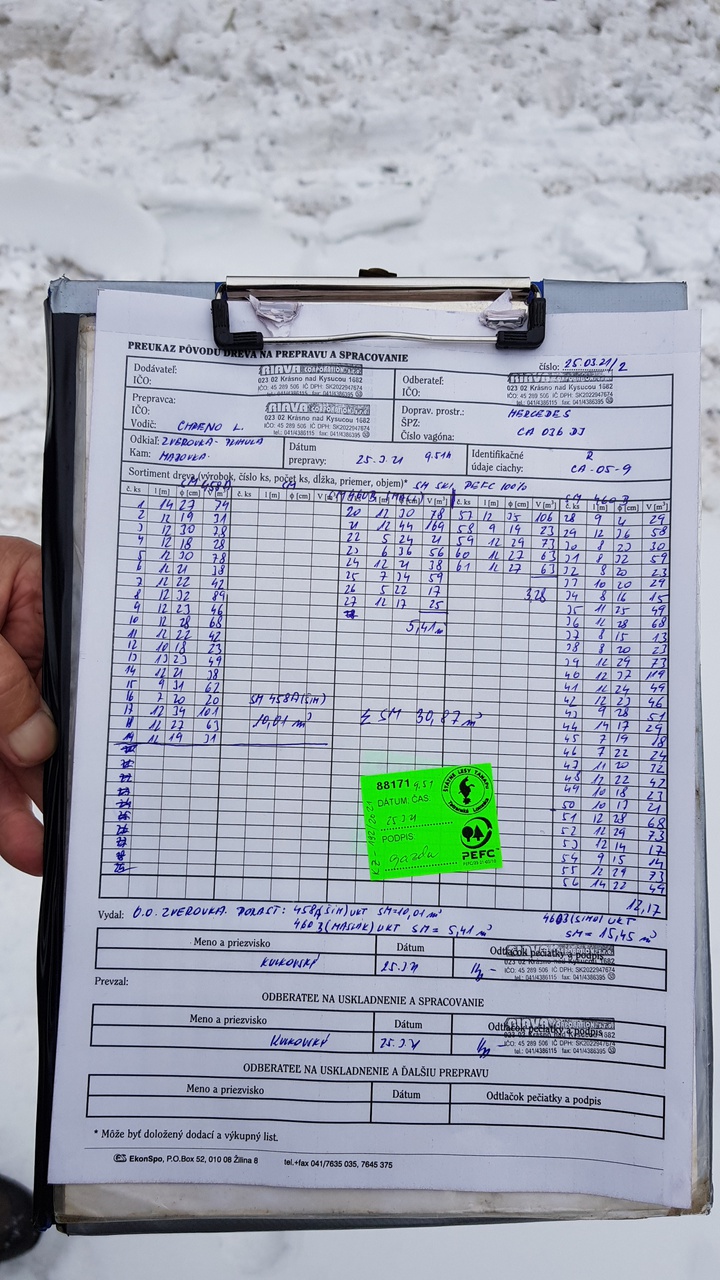 PREUKAZ PÔVODU DREVA NA PREPRAVU A SPRACOVANIE
číslo: 25.03.21/2
Dodávateľ:
IČO:
RIAVA CORPORATION
023 02 Krásno nad Kysucou 1682
IČO: 45 289 506 IČ DPH: SK2022947674
tel.: 041/4386115 fax: 041/4386395
Odberateľ:
IČO:
RIAVA CORPORATION
023 02 Krásno nad Kysucou 1682
IČO: 45 289 506 IČ DPH: SK2022947674
tel.: 041/4386115 fax: 041/4386395
Prepravca:
IČO:
Vodič:
RIAVA CORPORATION
023 02 Krásno nad Kysucou 1682
IČO: 45 289 506 IČ DPH: SK2022947674
tel.: 041/4386115 fax: 041/4386395
Doprav. prostr.: MERCEDES
ŠPZ:
Číslo vagóna: CA 036 DJ
Odkiaľ: ZVEROVKA
Kam:
Dátum
prepravy: 25.3.21 9.51h
Identifikačné
údaje ciachy: CA-05-9
Sortiment dreva (výrobok, číslo ks, počet ks, dĺžka, priemer, objem)* PEFC 100%
č. ks l [m] ϕ [cm] V [m³]
1 14 27 74
2 12 19 31
3 12 30 78
4 12 18 28
5 12 30 78
6 12 21 38
7 12 22 42
8 12 32 89
9 12 23 46
10 12 28 68
11 12 22 42
12 10 18 23
13 13 23 49
14 12 21 38
15 9 31 62
16 7 20 20
17 12 34 101
18 12 27 63
19 12 19 31
SM 458A(ŠIM)
10,01 m³
20 12 30 78
21 12 44 169
22 5 24 21
23 6 36 56
24 12 21 38
25 7 34 59
26 5 22 17
27 12 17 25
5,41 m³
Σ SM 30,87 m³
57 12 35 106
58 9 19 23
59 12 29 73
60 12 27 63
61 12 27 63
3,28
29 12 26 58
30 8 23 30
31 8 32 59
32 8 20 23
33 10 20 29
34 8 16 15
35 11 25 49
36 11 28 68
37 8 15 13
38 8 20 23
39 12 29 73
40 12 37 119
41 11 24 44
42 12 23 46
43 9 28 51
44 14 17 29
45 7 19 18
46 7 22 24
47 11 20 32
48 12 22 42
49 10 18 23
50 10 17 21
51 12 28 68
52 12 29 73
53 12 14 17
54 9 15 14
55 12 29 73
56 14 22 49
12,17
88171 9.51
DÁTUM, ČAS
25 3 21
PODPIS:
ŠTÁTNE LESY TANAPU
PEFC
Vydal: O.O. ZVEROVKA
SM=10,01 m³
SM = 5,41 m³
SM = 15,45 m³
Meno a priezvisko Dátum Odtlačok pečiatky a podpis
KULKOVSKÝ 25.3.21
RIAVA CORPORATION
023 02 Krásno nad Kysucou 1682
IČO: 45 289 506 IČ DPH: SK2022947674
tel.: 041/4386115 fax: 041/4386395
Prevzal:
ODBERATEĽ NA USKLADNENIE A SPRACOVANIE
Meno a priezvisko Dátum Odtlačok pečiatky a podpis
KULKOVSKÝ 25.3.21
RIAVA CORPORATION
023 02 Krásno nad Kysucou 1682
IČO: 45 289 506 IČ DPH: SK2022947674
tel.: 041/4386115 fax: 041/4386395
ODBERATEĽ NA USKLADNENIE A ĎALŠIU PREPRAVU
Meno a priezvisko Dátum Odtlačok pečiatky a podpis
* Môže byť doložený dodací a výkupný list.
EkonSpo, P.O.Box 52, 010 08 Žilina 8 tel.+fax 041/7635 035, 7645 375